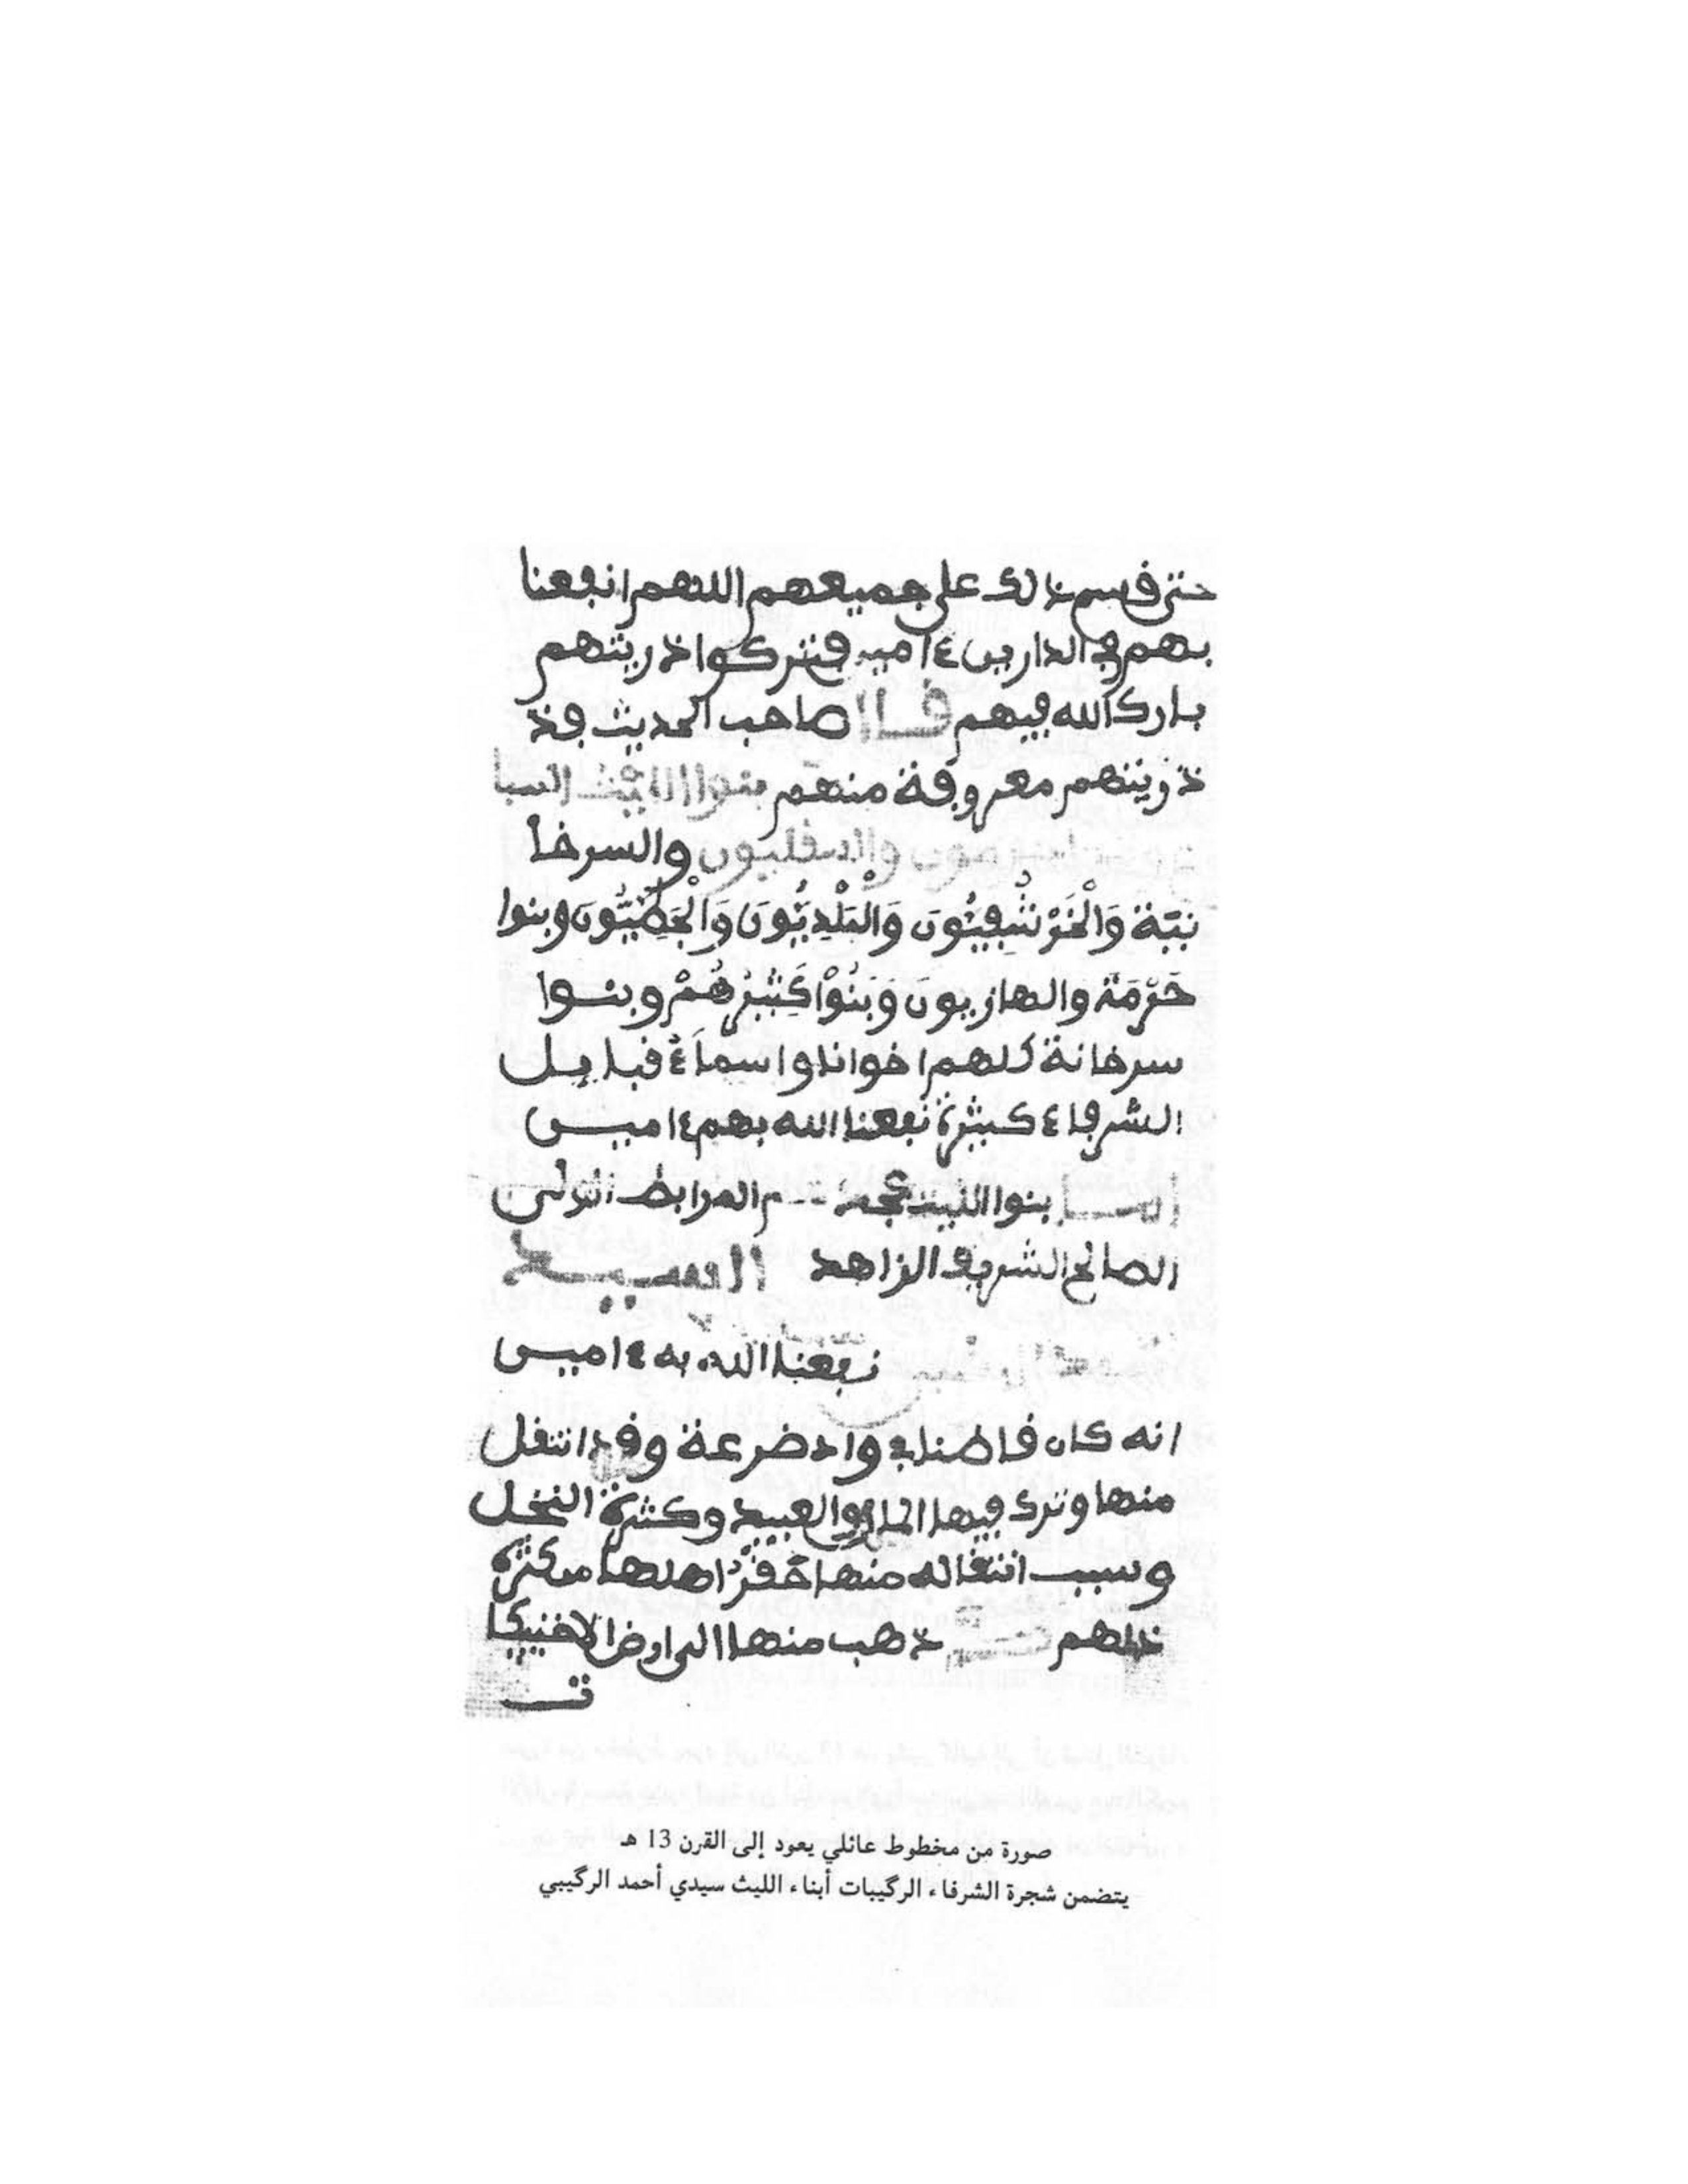 حتى قسم ذالك على جميعهم اللهم انفعنا
بهم في الدارين ءامين فتركوا ذريتهم
بارك الله فيهم قال صاحب الحديث فذ
ذريتهم معروفة منهم بنوا الليث السبا
والسفليون والسرخا
نيّة وَالْخَرْنُشِفِيُّونَ وَالْبَلْدِيُّونَ وَالْحَطِيُّونَ وبنوا
حَرْمَة والهازيون وَبَنُوا كَثِيرُهُمْ وبنوا
سرخانة كلهم اخوانا واسماءُ قبايل
الشرفاء كثيرة نفعنا الله بهم ءامين
بنوا الليث المرابط الولي
الصالح الشريف الزاهد السيد
نفعنا الله به ءامين
انه كان قاطنا في واد ضرعة وقد انتقل
منها وترك فيها المال والعبيد وكثرة النخل
وسبب انتقاله منها اهلها من كثرة
ذهب منها الى اوض الاخنيكا
ت
صورة من مخطوط عائلي يعود إلى القرن 13 هـ
يتضمن شجرة الشرفاء الرگيبات أبناء الليث سيدي أحمد الرگيبي